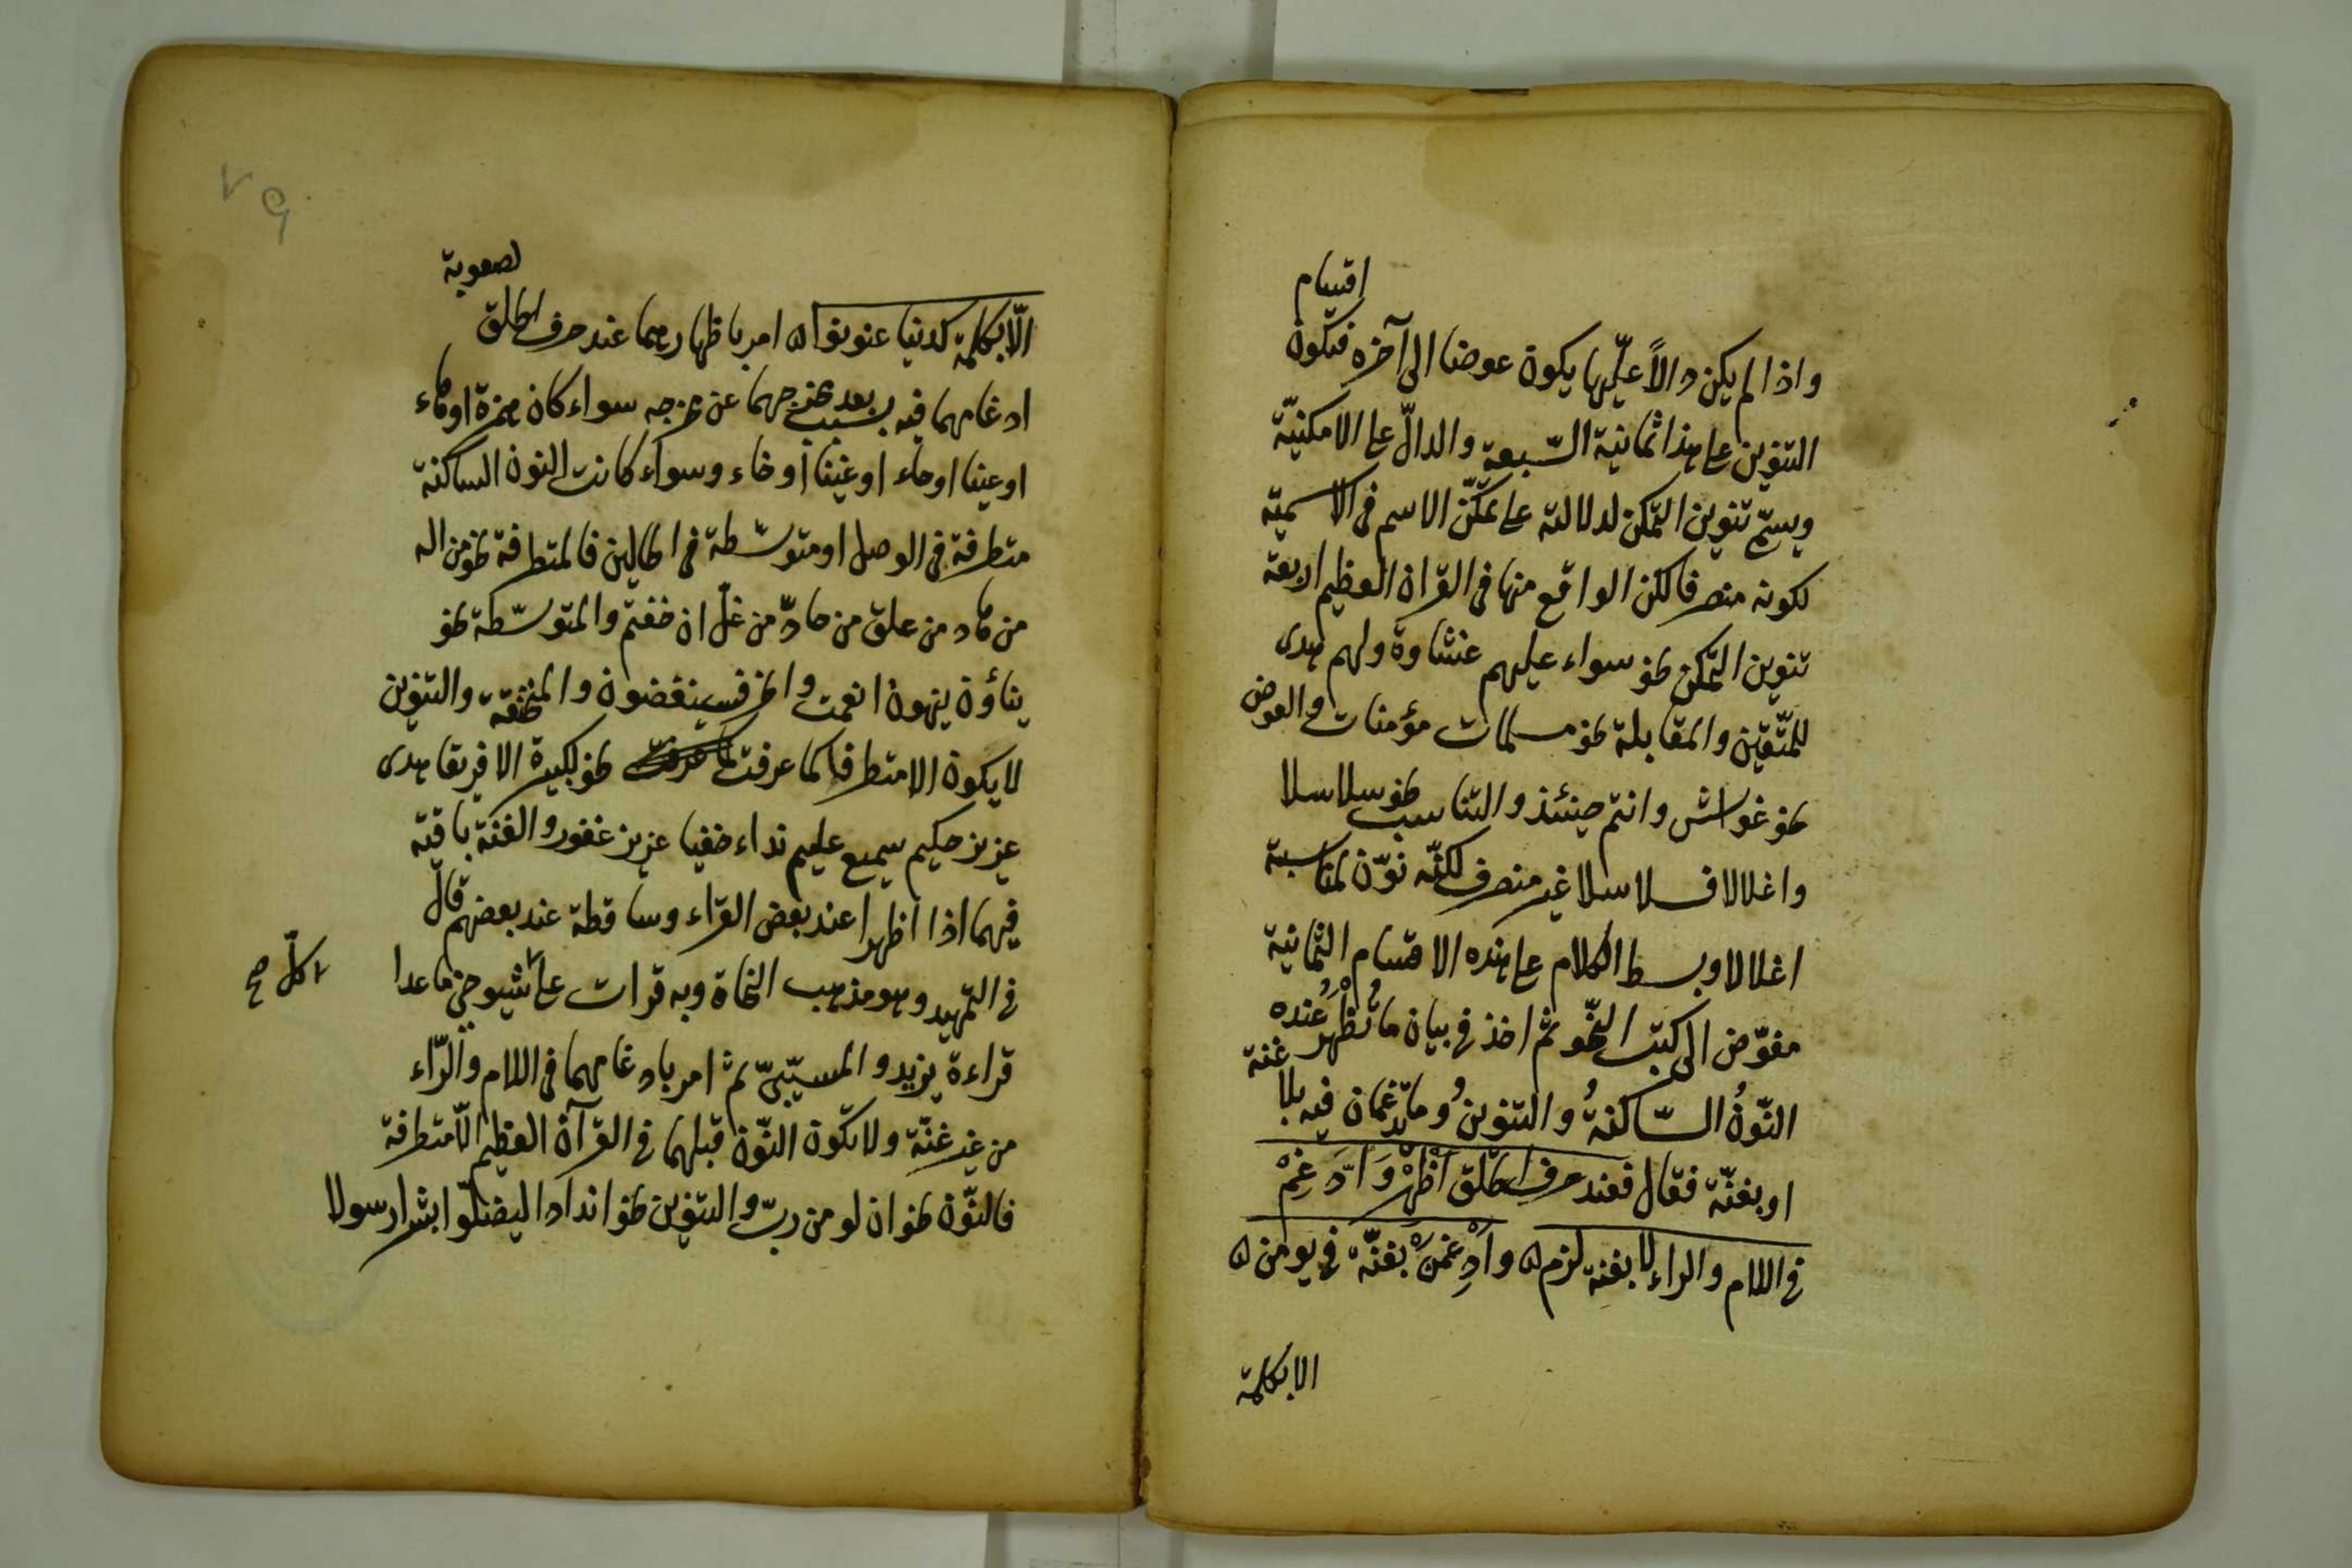 اقسام
واذا لم يكن دالاً عليها يكون عوضا الى آخره فيكون
التنوين على هذا ثمانية السّبعة والدالّ على الامكنيّة
ويسمّى تنوين التمكن لدلالته على تمكّن الاسم في الاسميّة
لكونه منصرفا لكن الواقع منها في القرآن العظيم اربعة
تنوين التمكن نحو سواء عليهم غشاوة ولهم هدى
للمتّقين والمقابلة نحو مسلمات مؤمنات والعوض
نحو غواش وانتم حينئذ والتناسب نحو سلاسلا
واغلالا فسلاسلا غير منصرف لكنّه نوّن لمناسبة
اغلالا وبسط الكلام على هذه الاقسام الثمانية
مفوّض الى كتب النّحو ثم اخذ في بيان ما تُظْهَرُ عنده
النّونُ السّاكنةُ والتنوينُ وما تدغمان فيه بلا غنة
او بغنّة فقال فعند حرف الحلق أظْهِرْ وَادّغِمْ
في اللام والراء لا بغنة لزم ٥ وَأدْغِمَنْ بغنّة في يومن ٥
الا بكلمة
لصعوبة
الّا بكلمة كدنيا عنونوا ٥ امر باظهارهما عند حرف الحلق
ادغامهما فيه بسبب بعد مخرجهما عن مخرجه سواء كان همزة او هاء
او عينا او حاء او غينا او خاء وسواء كانت النون الساكنة
متطرفة في الوصل او متوسّطة في الحالين فالمتطرفة نحو من اله
من هاد من علق من حادّ من غلّ ان خفتم والمتوسّطة نحو
ينأون ينهون انعمت وانحر فسينغضون والمنخنقة والتنوين
لا يكون الا متطرفا كما عرفت نحو لكبيرة الا فريقا هدى
عزيز حكيم سميع عليم نداء خفيا عزيز غفور والغنة باقية
فيهما اذا اظهرا عند بعض القرّاء وساقطة عند بعضهم قال
في التمهيد وهو مذهب النحاة وبه قرات على شيوخي ما عدا
كلّ صح
قراءة يزيد والمسيّبيّ ثم امر بادغامهما في اللام والرّاء
من غير غنّة ولا تكون النّون قبلهما في القرآن العظيم الّا متطرفة
فالنّون نحو ان لو من ربّ والتنوين نحو اندادا ليضلّوا بشرا رسولا